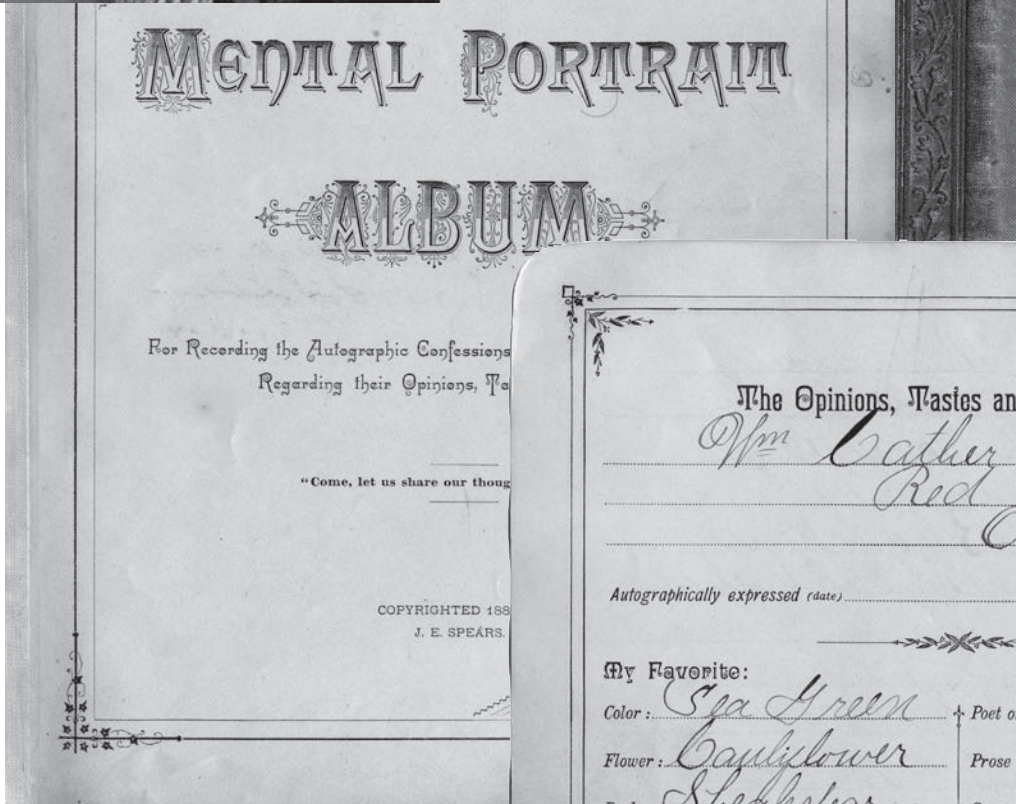 MENTAL PORTRAIT
ALBUM
For Recording the Autographic Confessions
Regarding their Opinions, Ta
"Come, let us share our thoug
COPYRIGHTED 188
J. E. SPEARS.
The Opinions, Tastes an
Wm Cather
Red
Autographically expressed (date)
My Favorite:
Color: Sea Green
Poet o
Flower: Cauliflower
Prose